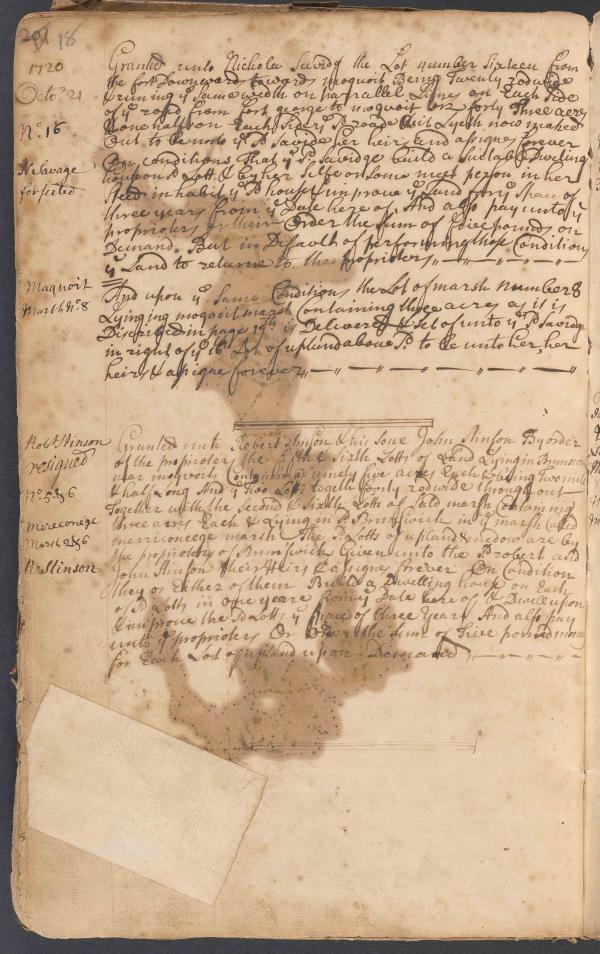 201 18
1720
Octo.r 21
No. 16
N Savage
forfieted
Granted unto Nichola Savidg the Lot number Sixteen from
the fort Downwards towards moquoit Being Twenty rodwide
& runing ye Same width on parrallel Lynes on Each Side
of ye road from fort george to moquoit on forty three acres
& one half on Each Side ye Sd roade as it Lyeth now marked
out to be unto ye Sd Savidge her heirs and asignes forever
On conditions That ye Sd Savidge build a Sutable Dweling
house on Sd Lott & Eyther Selfe or Some meet person in her
Steed inhabit ye Sd house & improve ye Land for ye Space of
three years from ye Date here of, And also pay unto ye
proprioters or their Order the Sum of five pounds on
Demand. But in Default of performing those Conditions
ye Land to returne to the proprietors
Maquoit
Marsh No. 8
And upon ye Same Conditions the Lot of marsh number 8
Lying in moquoit marsh Containing three acres as it is
Discribed in page 19th is Delivered & Set of unto ye Sd Savidg
in right of ye 16 Lot of upland above Sd to be unto her, her
heirs & asigne forever
Robt Stinson
resigned
No. 5 & 6
Mereconege
Marsh 2 & 6
Rt Stinson
Granted unto Robert Stinson & his Sone John Stinson By order
of the proprioters the fifth & Sixth Lotts of Land Lying in Brunswick
near moquoit Containing ninety five acres Each & being two mile
& half Long And ye two Lotts together forty rodwide throughout
Together with the Second & Sixth Lotts of Salt marsh Containing
three acres Each & Lying in Sd Brunswick in ye marsh called
merriconcege marsh The Sd Lotts of upland & medow are by
the proprietors of Brunswick Given unto the Sd robert and
John Stinson their Heirs & asigne forever On Condition
they or Either of them Build a Dwelling house on Each
of Sd Lotts in one yeare from ye Date here of & Dwell upon
& improve the Sd Lotts ye Space of three Years And also pay
unto ye proprioters Or Order the Sum of five pound mony
for Each Lot of upland upon Demand